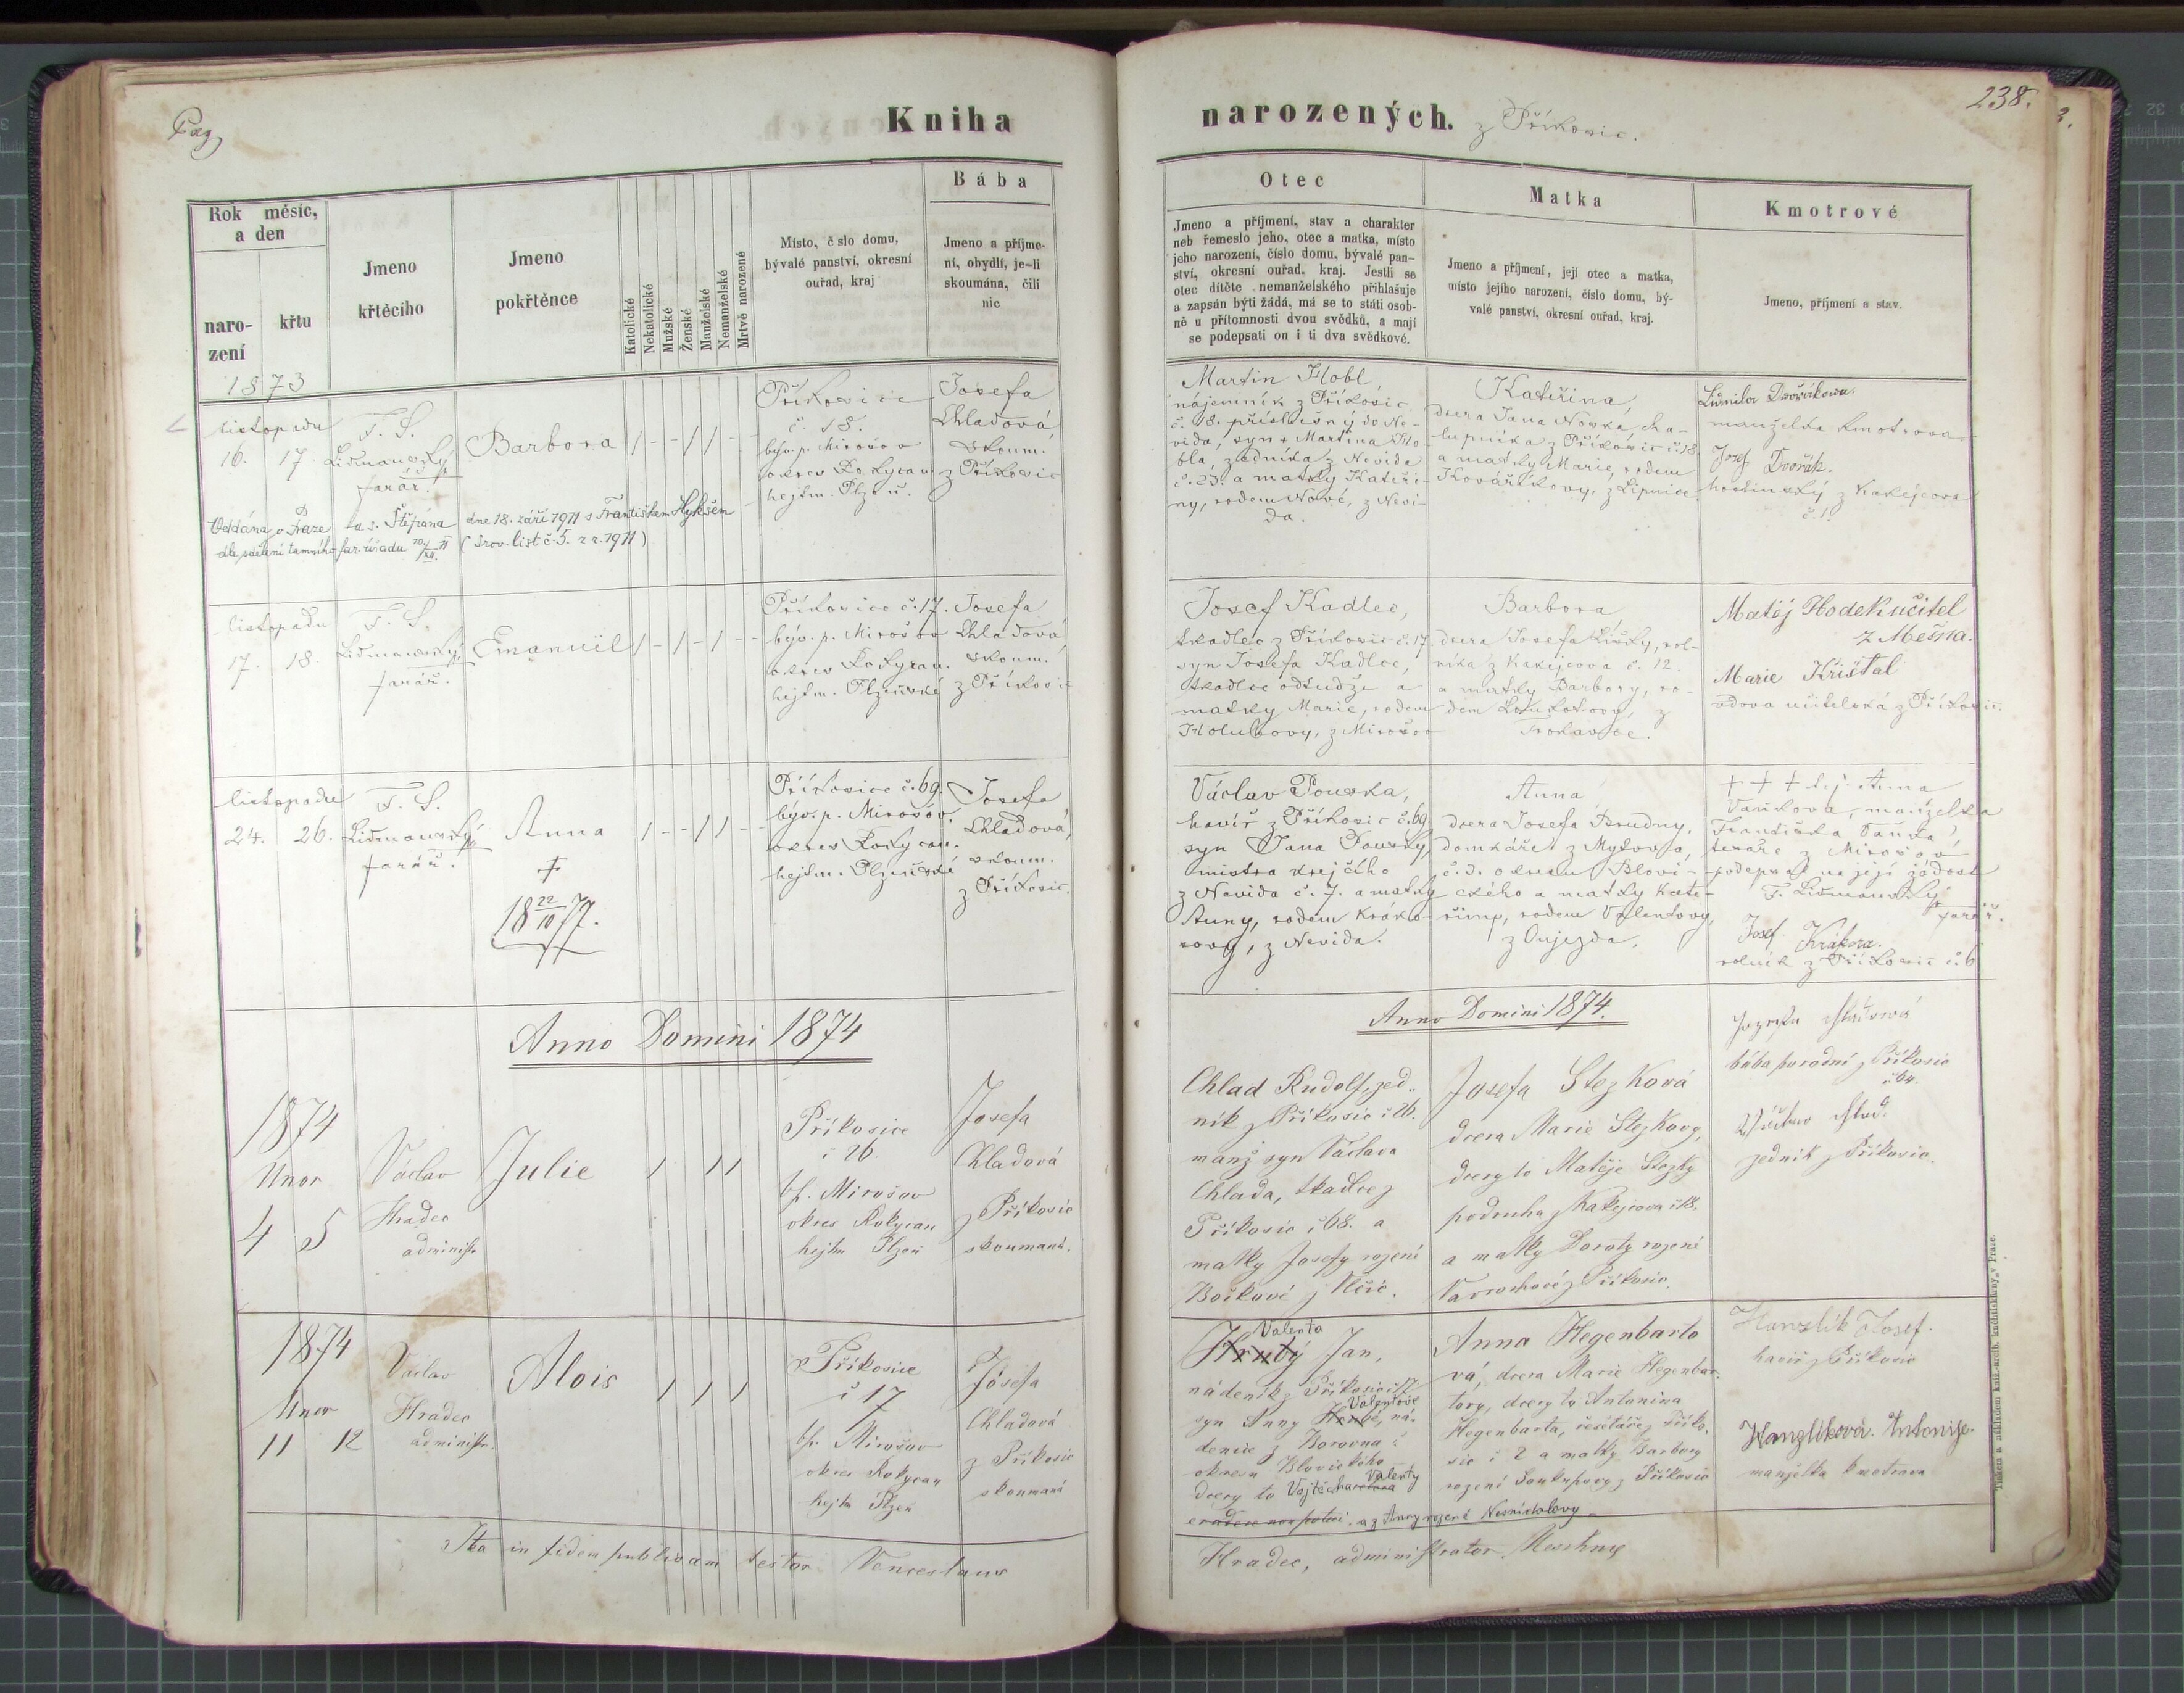 Pag
Kniha
narozených. z Příkosic.
238.
Rok měsíc,
a den
naro-
zení
křtu
Jmeno
křtěcího
Jmeno
pokřtěnce
Katolické
Nekatolické
Mužské
Ženské
Manželské
Nemanželské
Mrtvě narozené
Místo, č slo domu,
bývalé panství, okresní
ouřad, kraj
Bába
Jmeno a příjme-
ní, obydlí, je-li
skoumána, čili
nic
Otec
Jmeno a příjmení, stav a charakter
neb řemeslo jeho, otec a matka, místo
jeho narození, číslo domu, bývalé pan-
ství, okresní ouřad, kraj. Jestli se
otec dítěte nemanželského přihlašuje
a zapsán býti žádá, má se to státi osob-
ně u přítomnosti dvou svědků, a mají
se podepsati on i ti dva svědkové.
Matka
Jmeno a příjmení, její otec a matka,
místo jejího narození, číslo domu, bý-
valé panství, okresní ouřad, kraj.
Kmotrové
Jmeno, příjmení a stav.
1873
listopadu
16. 17.
F. S.
Lidmanský
farář.
Barbora
Příkosice
č. 18.
býv. p. Mirošov
okres Rokycan.
hejtm. Plzeň.
Josefa
Chladová,
skoum.
z Příkosic
Martin Hobl,
nájemník z Příkosic
č. 18. příslušný do Ne-
vida, syn + Martina Ho-
bla, zedníka z Nevida
č. 23. a matky Kateři-
ny, rodem Nové, z Nevi-
da.
Kateřina,
dcera Jana Nowka, cha-
lupníka z Příkosic č. 18
a matky Marie, rodem
Kovaříkovy, z Lipnice.
Lidmila Dvořáková.
manželka kmotrova.
Josef Dvořák.
hostinský z Kakejcova
č. 1.
Oddána v Praze u s. Štěpána dne 18. září 1911 s Františkem Hykšem
dle sdělení tamního far. úřadu 10/XII. 11 (Srov. list č. 5. z r. 1911)
listopadu
17. 18.
F. S.
Lidmanský,
farář.
Emanuel
Příkosice č. 17.
býv. p. Mirošov
okres Rokycan.
hejtm. Plzeňské
Josefa
Chladová,
skoum.
z Příkosic
Josef Kadlec,
tkadlec z Příkosic č. 17.
syn Josefa Kadlce,
tkadlce odtudže a
matky Marie, rodem
Holubovy, z Mirošov
Barbora,
dcera Josefa Lišky, rol-
níka z Kakejcova č. 12.
a matky Barbory, ro-
dem Loukotovy, z
Trokavce.
Matěj Hodek učitel
z Mešna.
Marie Křišťal
vdova učitelská z Příkosic.
listopadu
24. 26.
F. S.
Lidmanský
farář.
Anna
+
18 22/10 77.
Příkosice č. 69.
býv. p. Mirošov.
okres Rokycan.
hejtm. Plzeňské
Josefa
Chladová,
skoum.
z Příkosic.
Václav Pouska,
havíř z Příkosic č. 69
syn Jana Pousky,
mistra krejčího
z Nevida č. 7. a matky
Anny, rodem Kráko-
rovy, z Nevida.
Anna
dcera Josefa Brudny,
domkáře z Mytova,
č. 3. okresu Blovi-
ckého a matky Kate-
řiny, rodem Valentovy,
z Oujezda.
+ + + t. j. Anna
Vaňkova, manželka
Františka Vaňka,
tesaře z Mirošova
podepsal na její žádost
F. Lidmanský
farář.
Josef Krákora.
rolník z Příkosic č. 6
Anno Domini 1874
Anno Domini 1874.
1874
Unor
4 5
Václav
Hradec
administr.
Julie
Příkosice
č 26.
b. p. Mirošov
okres Rokycan
hejtm Plzeň
Josefa
Chladová
z Příkosic
skoumaná.
Chlad Rudolf, zed-
ník z Příkosic č 26.
manž syn Václava
Chlada, tkadlce z
Příkosic č 68. a
matky Josefy rozené
Boškové z
Josefa Stezková
dcera Marie Stezkovy,
dcery to Matěje Stezky
podruha z Kakejcova č 18.
a matky Doroty rozené
z Příkosic.
Chladová
bába porodní z Příkosic
č 64.
Václav Chlad.
zedník z Příkosic.
1874
Unor
11 12
Václav
Hradec
administr.
Alois
Příkosice
č 17
b. p. Mirošov
okres Rokycan
hejtm Plzeň
Josefa
Chladová
z Příkosic
skoumaná
Valenta
Hrubý Jan,
nádeník z Příkosic č 17
Valentové
syn Anny Hrubé, ná-
denice z Borovna
okresu Blovického
Valenty
dcery to Vojtěcha
a z Anny rozené Nesnídalovy
Anna Hegenbarto
vá, dcera Marie Hegenbar-
tovy, dcery to Antonina
Hegenbarta, řešetáře z Příko-
sic č 2 a matky Barbory
rozené Soukupovy z Příkosic
Hanzlík Josef.
havíř z Příkosic
Hanzlíková Antonije.
manželka kmotrova
Ita in fidem publicam testor Venceslaus
Hradec, administrator Meschnie
Tiskem a nákladem kníž.-arcib. knihtiskárny v Praze.